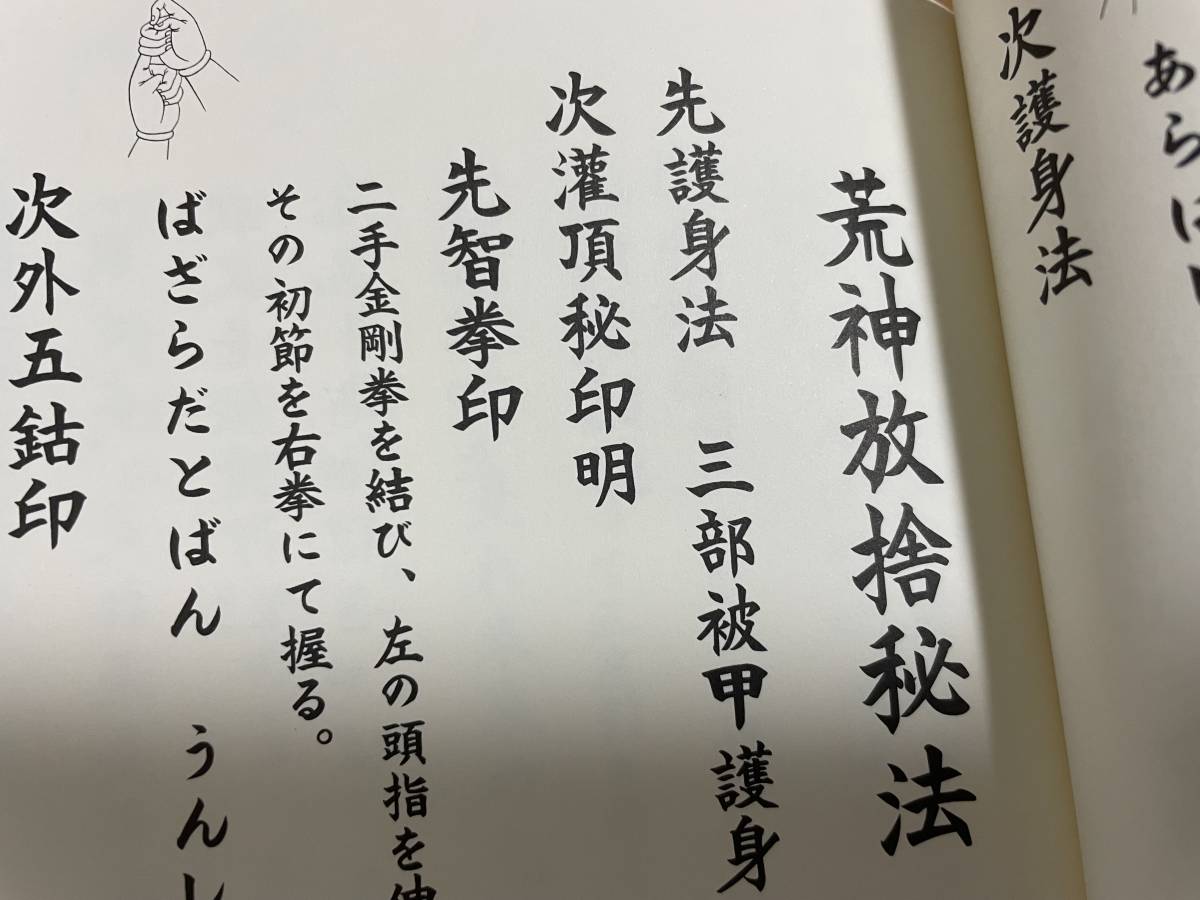 あらは
次護身法
荒神放捨秘法
先護身法　三部被甲護身
次灌頂秘印明
先智拳印
二手金剛拳を結び、左の頭指を
その初節を右拳にて握る。
ばざらだとばん　うん
次外五鈷印